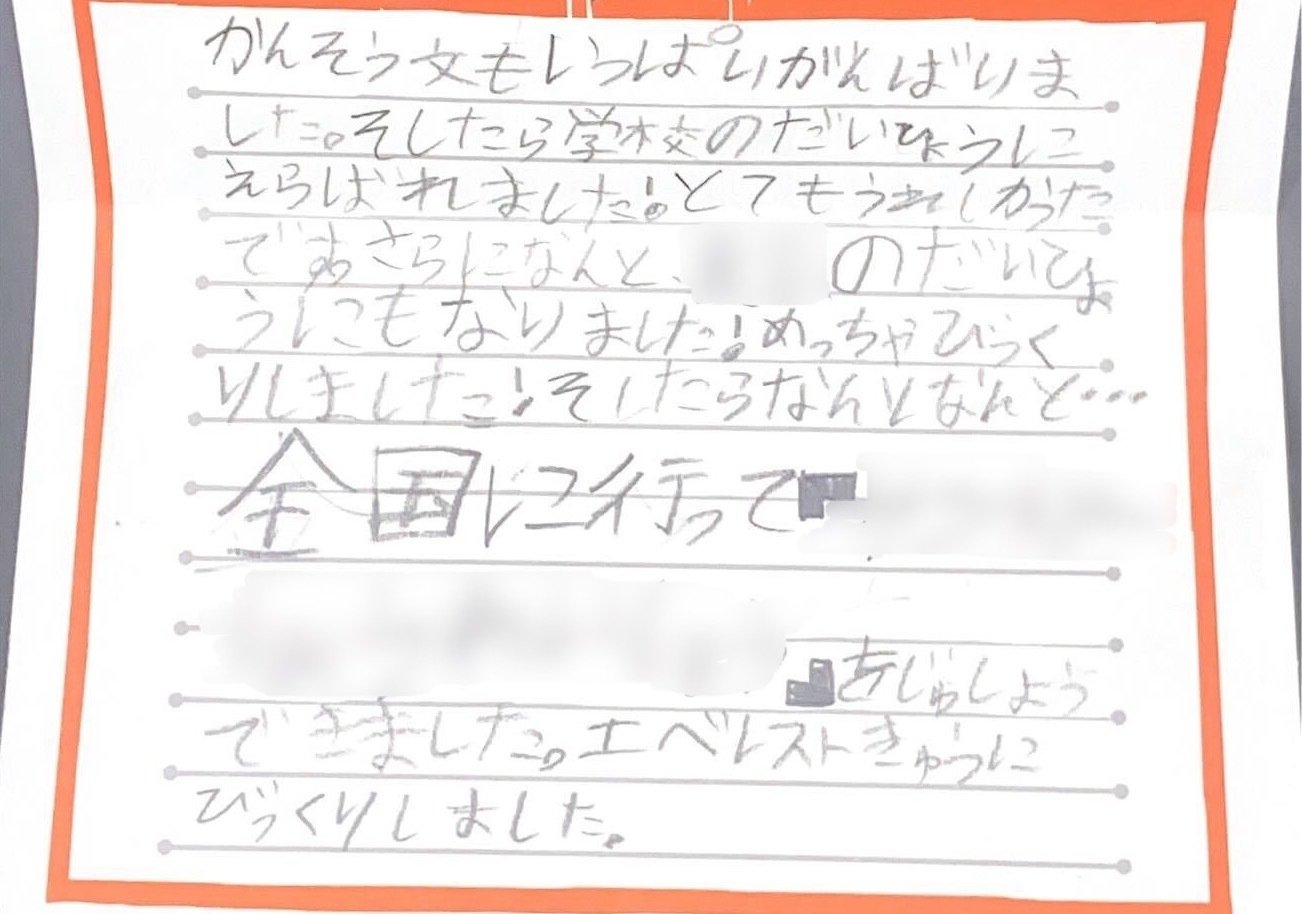 かんそう文もいっぱいがんばりま
した。そしたら学校のだいひょうに
えらばれました!とてもうれしかった
です。さらになんと、
のだいひょ
うにもなりました!めっちゃびっく
りしました!そしたらなんとなんと…
全国に行って『
』をじゅしょう
できました。エベレストきゅうに
びっくりしました。